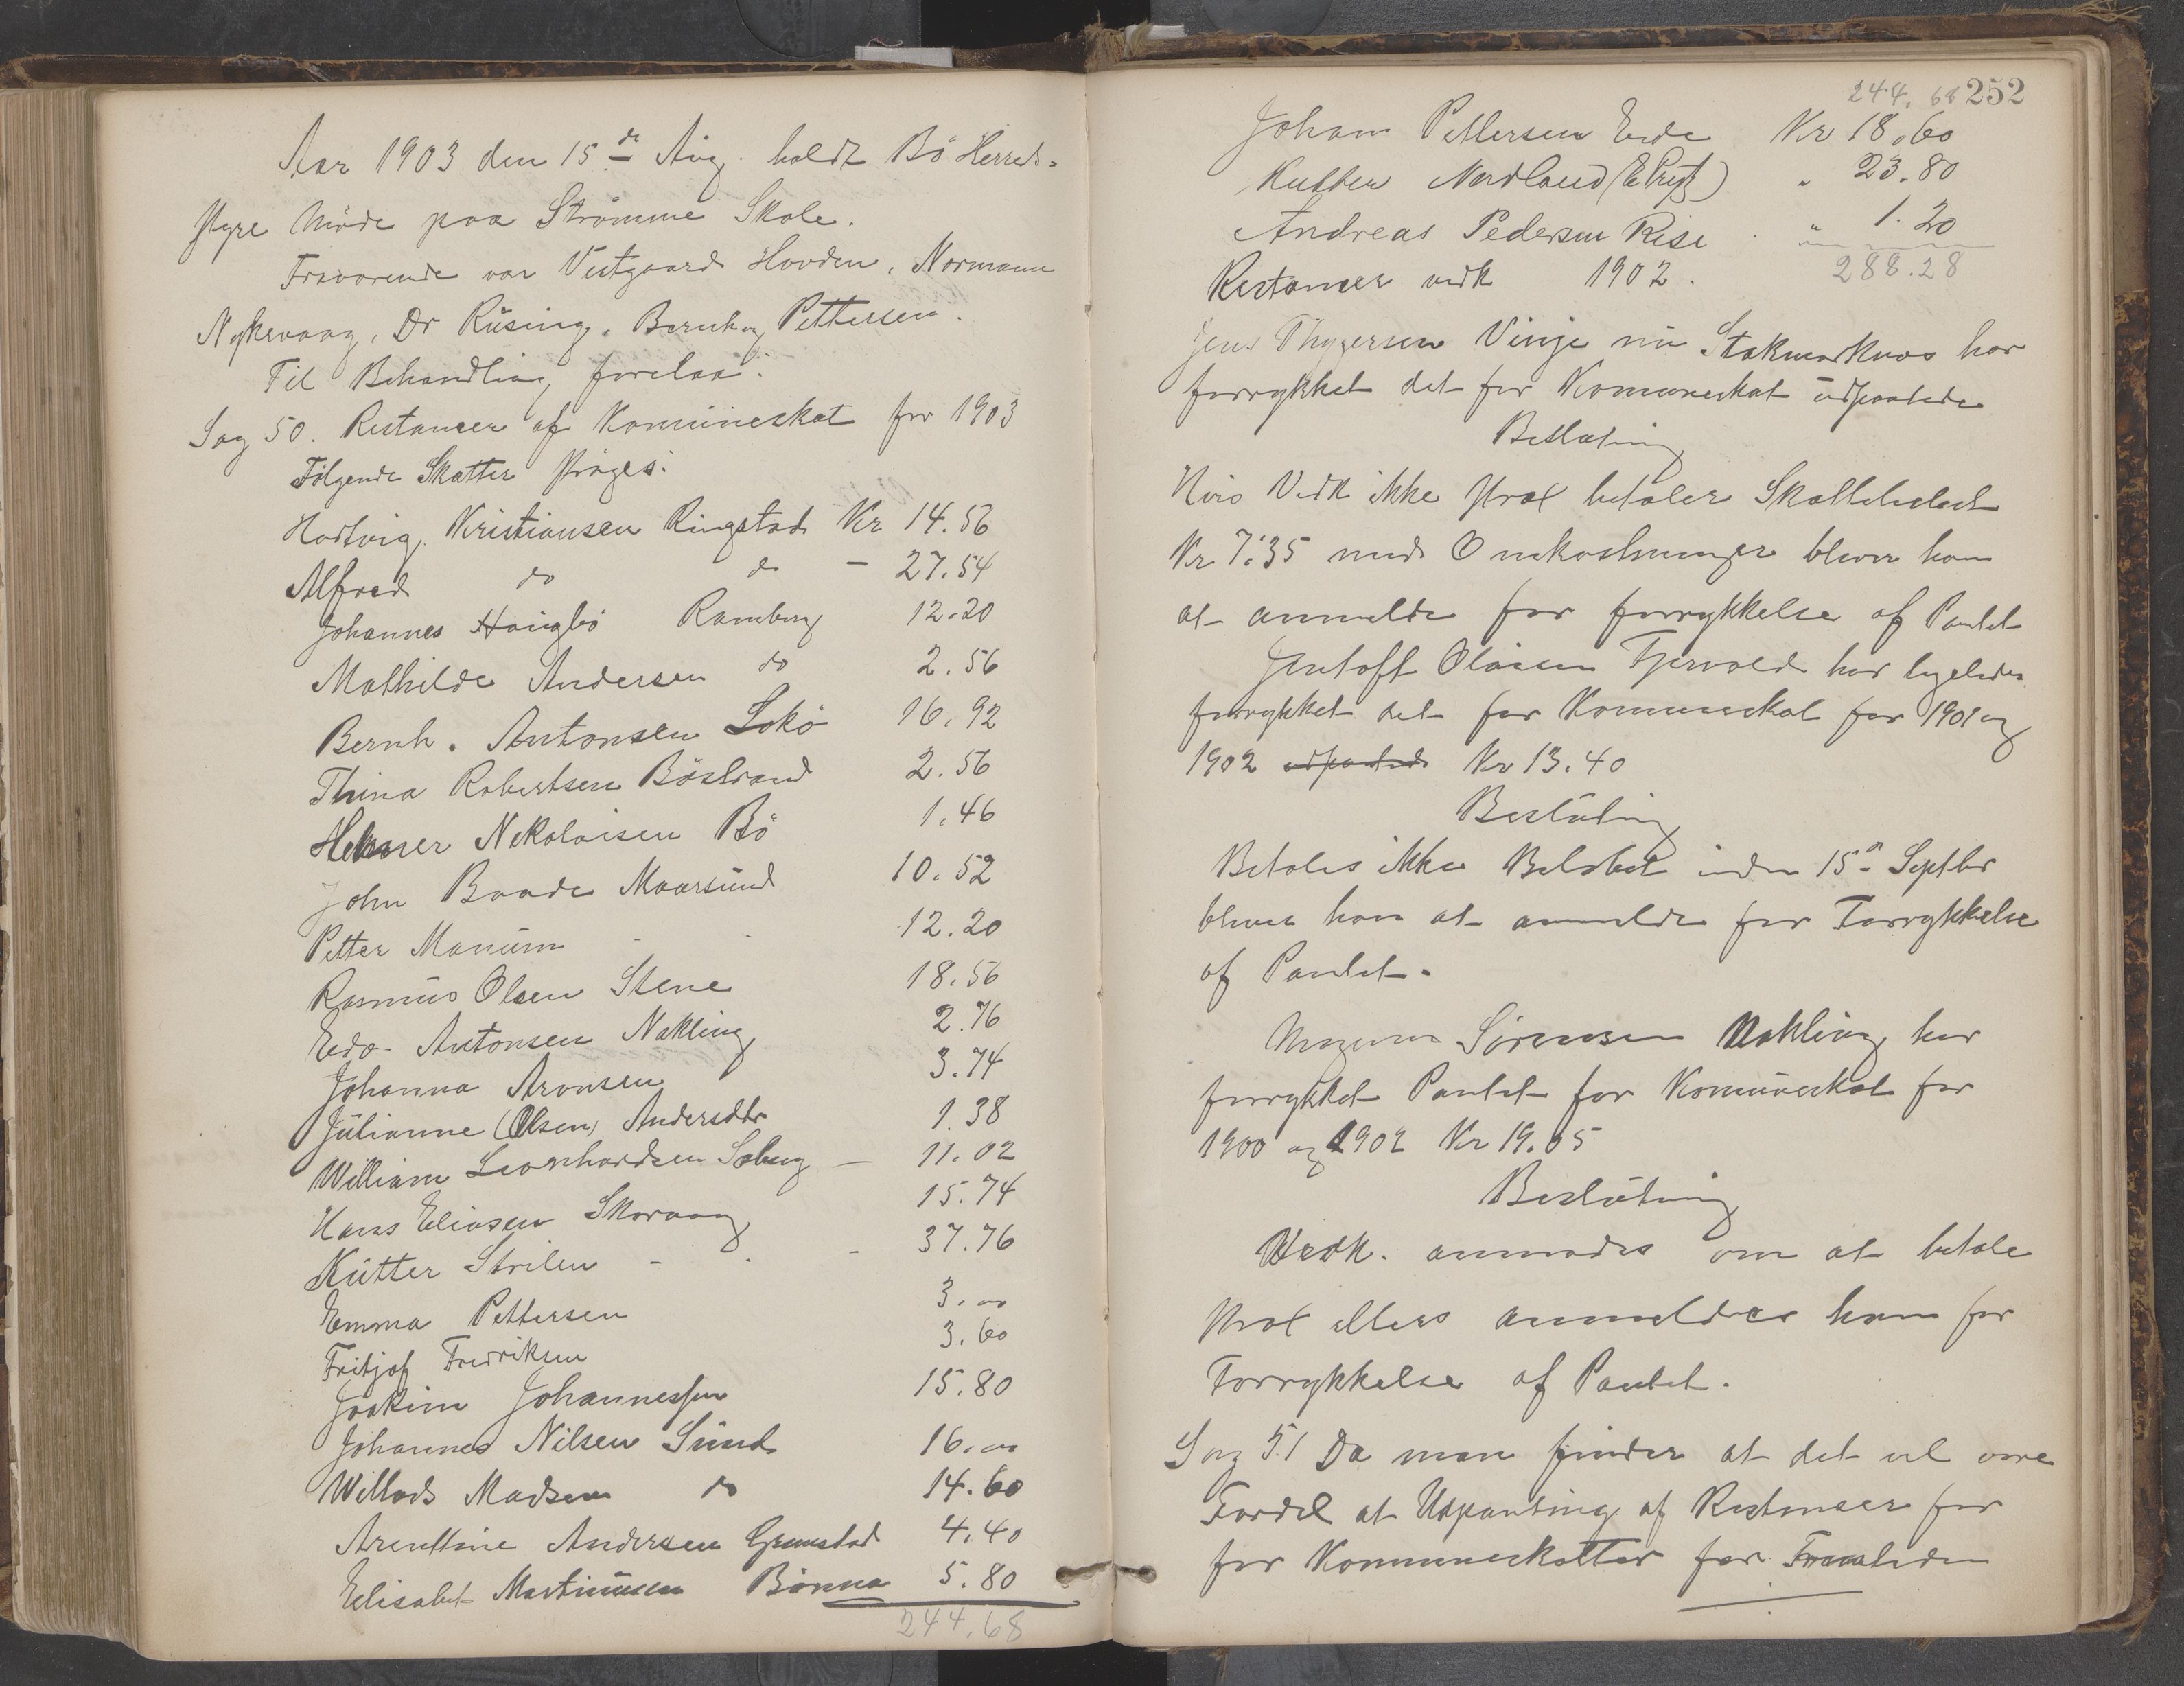 Aar 1903 den 15de Aug. holdt Bö Herreds-
styre Möde paa Strömme Skole.
Fraværende var Vestgaard Hovden, Normann
Nykvaag, Dr Rüsing, Bernh. Pettersen.
Til Behandling forelaa:
Sag 50. Restancer af Komuneskat for 1903
Fölgende Skatter ströges:
Hartvig Kristiansen Ringstad Kr 14.56
Alfred do do - 27.54
Johannes Hauglö Ramberg 12.20
Mathilde Andersen do 2.56
Bernh. Antonsen Lokö 16.92
Thina Robertsen Böstrand 2.56
Nekolaisen Bö 1.46
John Baade Maarsund 10.52
Petter Manum 12.20
Rasmus Olsen Stene 18.56
Edv. Antonsen Nakling 2.76
Johanna Aronsen 3.74
Julianne (Olsen) Andersdtr 1.38
William Leonhardsen Søberg - 11.02
Hans Eliasen Skorvaag 15.74
Kutter Strilen - - 37.76
Emma Pettersen 3.00
Fritjof Fredriksen 3.60
Joakim Johannessen 15.80
Johannes Nilsen Sund 16.00
Willads Madsen do 14.60
Arentine Andersen Grimstad 4.40
Elisabet Martinusen Bönna 5.80
244.68
244.68 252
Johan Pettersen Eide Kr 18.60
Kutter Nordland " 23.80
Andreas Pedersen Rise " 1.20
288.28
Restancer vedk 1902.
Jens Thygersen Vinje nu Stokmarknes har
forrykket det for Komuneskat udpantede
Beslutning
Hvis Vedk ikke strax betaler Skattebeløbet
Kr 7.35 med Omkostninger bliver han
at anmelde for forrykkelse af Pantet
Jentoft Olaisen Fjærvold har ligeledes
forrykket det for Kommuneskat for 1901 og
1902 udpantede Kr 13.40
Beslutning
Betales ikke Beløbet inden 15de Septbr
bliver han at anmelde for Forrykkelse
af Pantet.
Magnus Sörensen Nakling har
forrykket Pantet for Komuneskat for
1900 og 1902 Kr 19.05
Beslutning
Vedk. anmodes om at betale
strax ellers anmeldes han for
Forrykkelse af Pantet.
Sag 51 Da man finder at det vil være
Fordel at Udpanting af Restancer for
for Kommuneskatter for Fremtiden